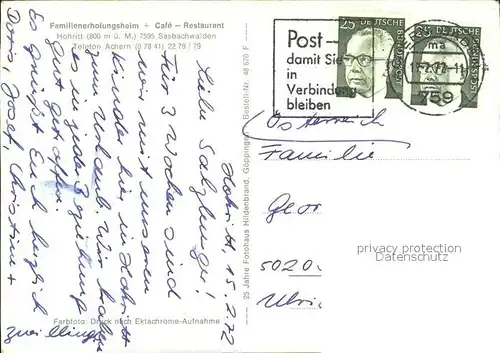 Familienerholungsheim + Café – Restaurant
Hohritt (800 m ü. M.) 7595 Sasbachwalden
Telefon Achern (0 78 41) 22 78 / 79
Hohritt, 15.2.72
Liebe Salzburger!
Für 3 Wochen sind
wir mit unseren
Kinder hier in Hohritt
zum Urlaub. Wir haben
es in jeder Beziehung
gut getroffen.
Es grüßt Euch herzlich
Doris, Josef, Christine +
Zwillinge
Farbfoto: Druck nach Ektachrome-Aufnahme
25 Jahre Fotohaus Hildenbrand, Göppingen Bestell-Nr. 48 670 F
Post –
damit Sie
in
Verbindung
bleiben
25 DEUTSCHE BUNDESPOST
25 DEUTSCHE BUNDESPOST
ma
759
Österreich
Familie
Geor
5020
Ulri
privacy protection
Datenschutz